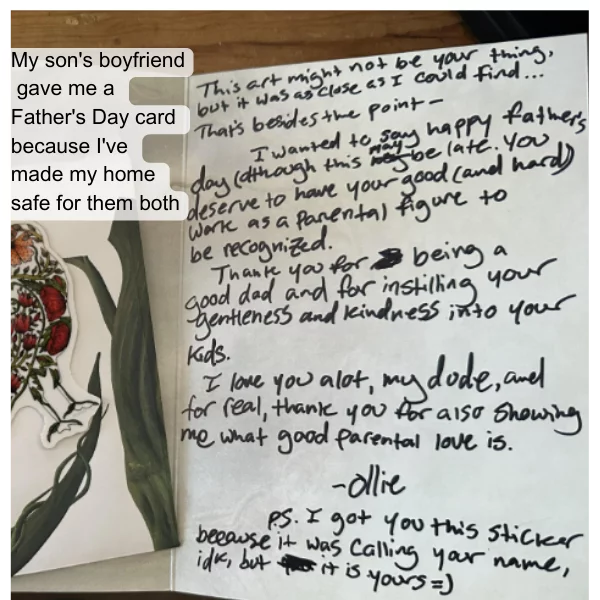 My son's boyfriend
gave me a
Father's Day card
because I've
made my home
safe for them both
This art might not be your thing,
but it was as close as I could find...
That's besides the point -
I wanted to say happy father's
day (although this may be late. You
deserve to have your good (and hard)
work as a parental figure to
be recognized.
Thank you for being a
good dad and for instilling your
gentleness and kindness into your
kids.
I love you alot, my dude, and
for real, thank you for also showing
me what good parental love is.
-ollie
P.S. I got you this sticker
because it was calling your name,
idk, but it is yours =)